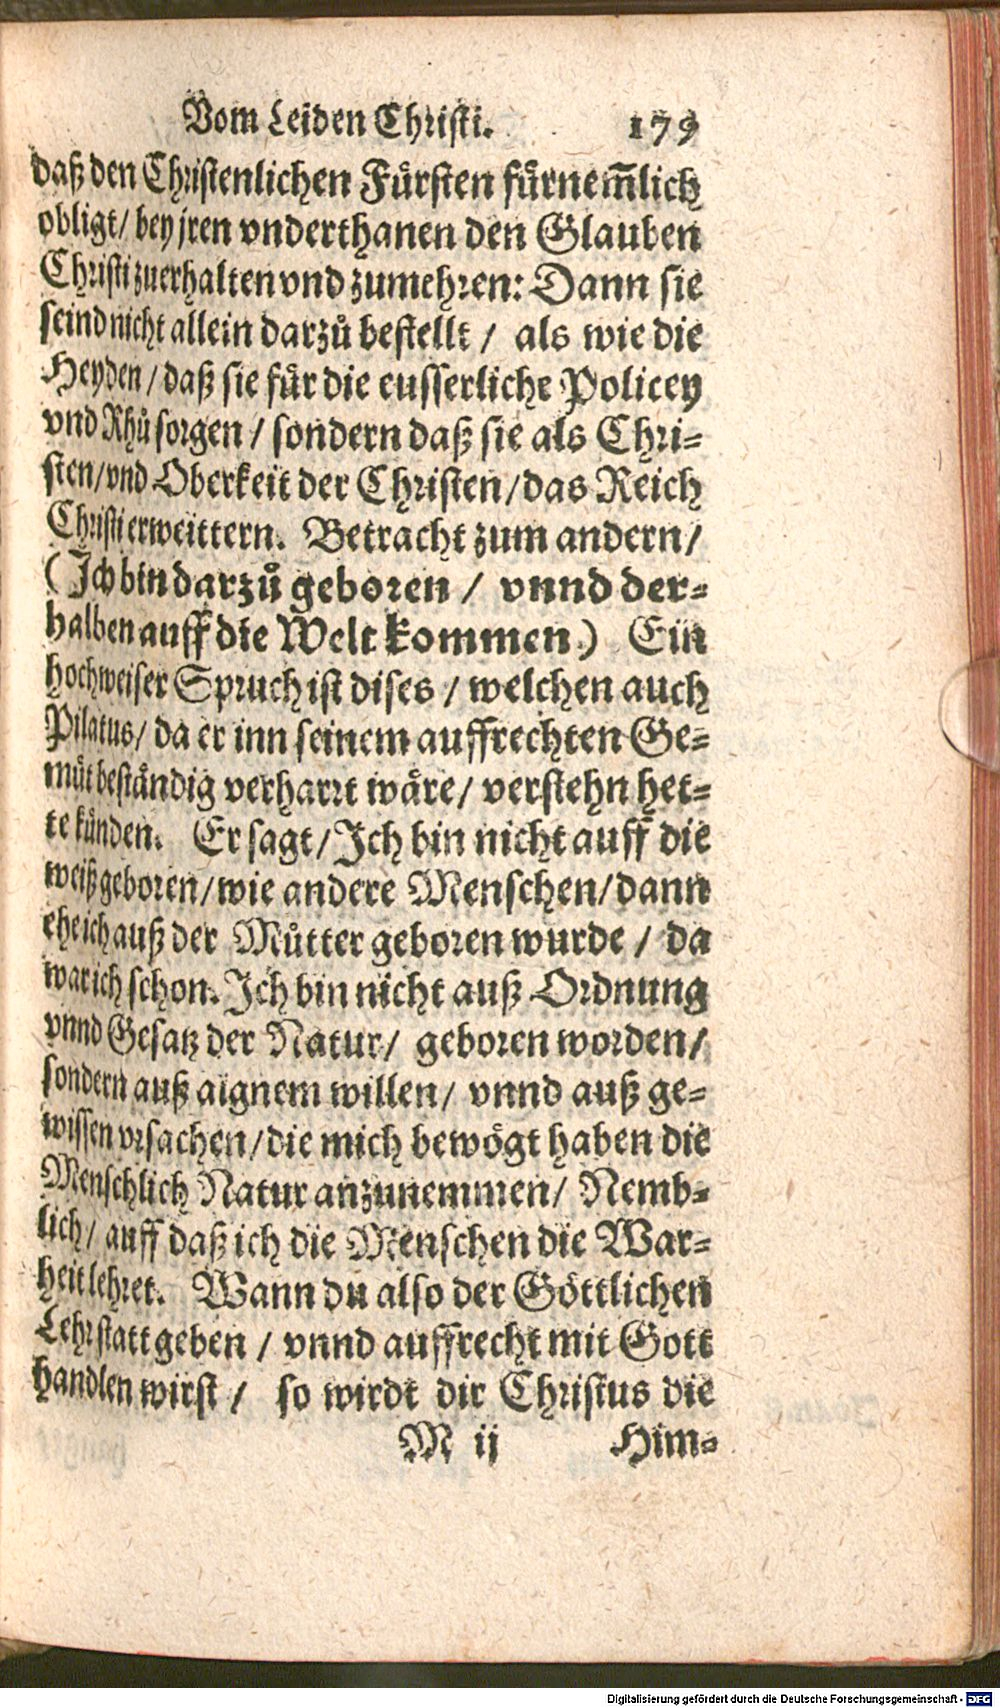 Vom Leiden Christi. 179
daß den Christenlichen Fürsten fürnem̃lich
obligt/ bey jren vnderthanen den Glauben
Christi zuerhalten vnd zumehren: Dann sie
seind nicht allein darzů bestellt / als wie die
Heyden / daß sie für die eusserliche Policey
vnd Rhů sorgen / sondern daß sie als Chri⸗
sten/vnd Oberkeit der Christen/das Reich
Christi erweittern. Betracht zum andern/
(Ich bin darzů geboren / vnnd der⸗
halben auff die Welt kommen.) Ein
hochweiser Spruch ist dises / welchen auch
Pilatus/ da er inn seinem auffrechten Ge⸗
müt beständig verharrt wäre/ verstehn het⸗
te künden. Er sagt/Ich bin nicht auff die
weiß geboren/wie andere Menschen/dann
ehe ich auß der Můtter geboren wurde / da
war ich schon. Ich bin nicht auß Ordnung
vnnd Gesatz der Natur/ geboren worden/
sondern auß aignem willen/ vnnd auß ge⸗
wissen vrsachen/die mich bewögt haben die
Menschlich Natur anzunemmen/ Nemb⸗
lich/ auff daß ich die Menschen die War⸗
heit lehret. Wann du also der Göttlichen
Lehr statt geben / vnnd auffrecht mit Gott
handlen wirst / so wirdt dir Christus die
M ij Him⸗
Digitalisierung gefördert durch die Deutsche Forschungsgemeinschaft - DFG